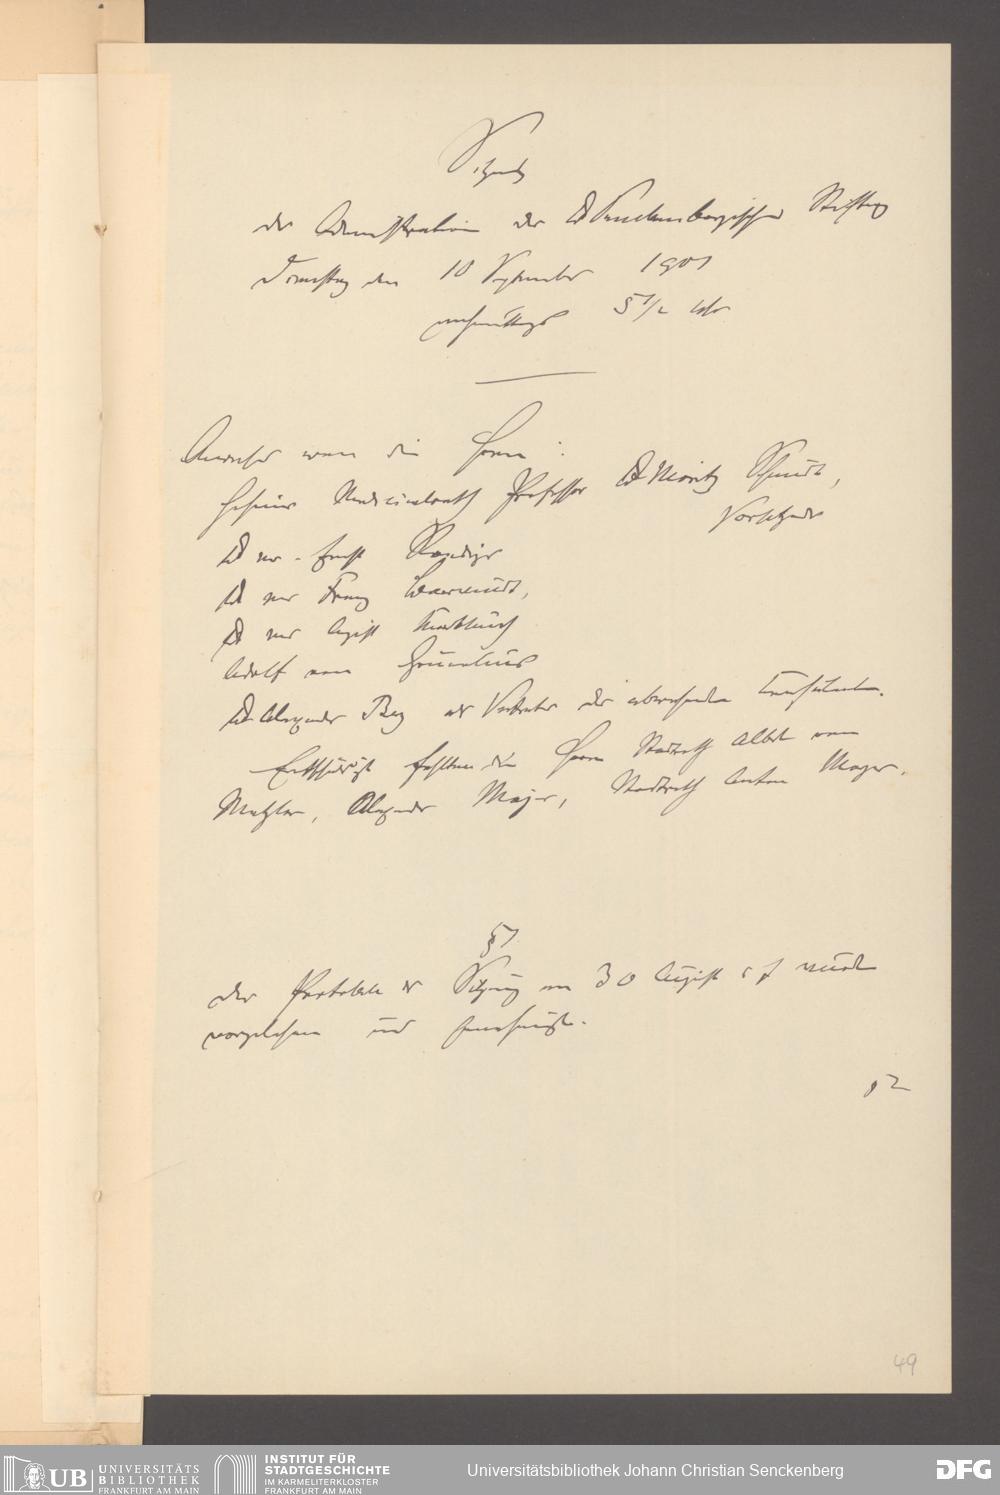 Sitzung
der Administration der Dr Senckenbergischen Stiftung
Dienstag den 10 September 1901
nachmittags 5 1/2 Uhr
Anwesend waren die Herren:
Geheimer Medicinalrath Professor Dr Moritz Schmidt,
Vorsitzender
Dr med. Ernst Roediger
Dr med Franz
Dr med August Knoblauch
Adolf von Grunelius
Dr Alexander Berg als Vertreter des abwesenden Consulenten.
Entschuldigt fehlten die Herren Stadtrath Albert von
Metzler, Alexander Majer, Stadtrath Anton Meyer.
§ 1
Das Protokoll der Sitzung vom 30 August c wurde
vorgelesen und genehmigt.
§ 2
49
UB UNIVERSITÄTS
BIBLIOTHEK
FRANKFURT AM MAIN
INSTITUT FÜR
STADTGESCHICHTE
IM KARMELITERKLOSTER
FRANKFURT AM MAIN
Universitätsbibliothek Johann Christian Senckenberg
DFG